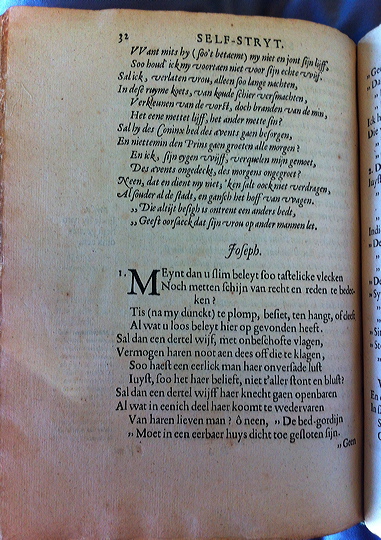 32 SELF-STRYT,
VVant mits hy (soo't betaemt) my niet en jont sijn lijff,
Soo houd' ick my voortaen niet voor sijn echte wijf.
Sal ick, verlaten vrou, alleen soo lange nachten,
In dese ruyme koets, van koude schier versmachten,
Verkleunen van de vorst, doch branden van de min,
Het eene metter lijff, het ander mette sin?
Sal hy des Coninx bed des avents gaen besorgen,
En niettemin den Prins gaen groeten alle morgen?
En ick, sijn eygen wijff, verquelen mijn gemoet,
Des avens ongedeckt, des morgens ongegroet?
Neen, dat en dient my niet, 'ken salt oock niet verdragen,
Al souder al de stadt, en gansch het hoff van wagen.
„ Die altijt besigh is ontrent een anders bedt,
„ Geeft oorsaeck dat sijn vrou op ander mannen let.
Joseph.
1. MEynt dan u slim beleyt soo tastelicke vlecken
Noch metten schijn van recht en reden te bedec-
ken?
Tis (na my dunckt) te plomp, besiet, ten hangt, of cleeft
Al wat u loos beleyt hier op gevonden heeft.
Sal dan een dertel wijf, met onbeschofte vlagen,
Vermogen haren noot aen dees off die te klagen,
Soo haest een eerlick man haer onversade lust
Iuyst, soo het haer belieft, niet t'aller stont en blust?
Sal dan een dertel wijff haer knecht gaen openbaren
Al wat in eenich deel haer koomt te wedervaren
Van haren lieven man? ô neen, „ De bed-gordijn
„ Moet in een eerbaer huys dicht toe gesloten sijn.
„ Geen